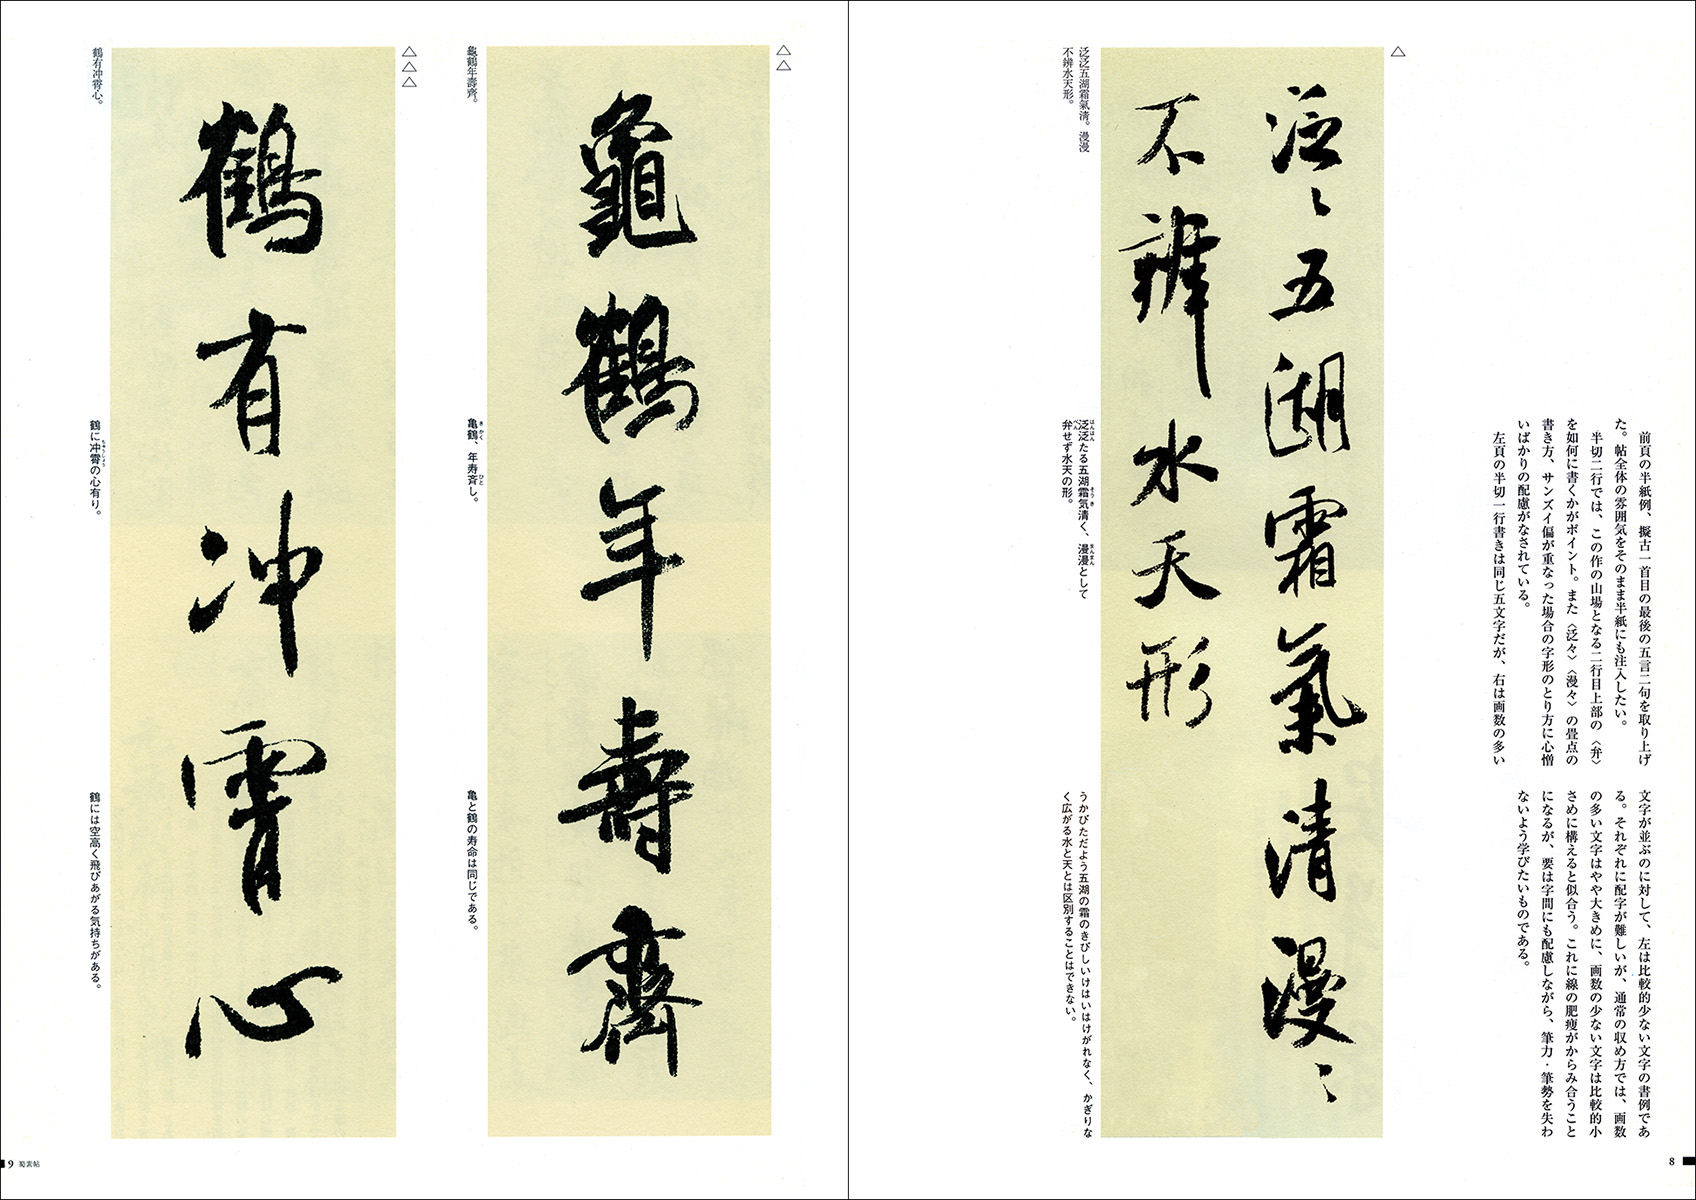 前頁の半紙例、擬古一首目の最後の五言二句を取り上げ
た。帖全体の雰囲気をそのまま半紙にも注入したい。
半切二行では、この作の山場となる二行目上部の〈弁〉
を如何に書くかがポイント。また〈泛々〉〈漫々〉の畳点の
書き方、サンズイ偏が重なった場合の字形のとり方に心憎
いばかりの配慮がなされている。
左頁の半切一行書きは同じ五文字だが、右は画数の多い
文字が並ぶのに対して、左は比較的少ない文字の書例であ
る。それぞれに配字が難しいが、通常の収め方では、画数
の多い文字はやや大きめに、画数の少ない文字は比較的小
さめに構えると似合う。これに線の肥痩がからみ合うこと
になるが、要は字間にも配慮しながら、筆力・筆勢を失わ
ないよう学びたいものである。
△
泛〻五湖霜氣清漫〻
不辨水天形
泛泛五湖霜氣清。漫漫
不辨水天形。
泛泛たる五湖霜気清く、漫漫として
はんはん そうき まんまん
弁せず水天の形。
べん
うかびただよう五湖の霜のきびしいけはいはけがれなく、かぎりな
く広がる水と天とは区別することはできない。
8
△△
龜鶴年壽齊
龜鶴年壽齊。
亀鶴、年寿斉し。
きかく ひと
亀と鶴の寿命は同じである。
△△△
鶴有冲霄心
鶴有冲霄心。
鶴に冲霄の心有り。
ちゅうしょう
鶴には空高く飛びあがる気持ちがある。
9 蜀素帖